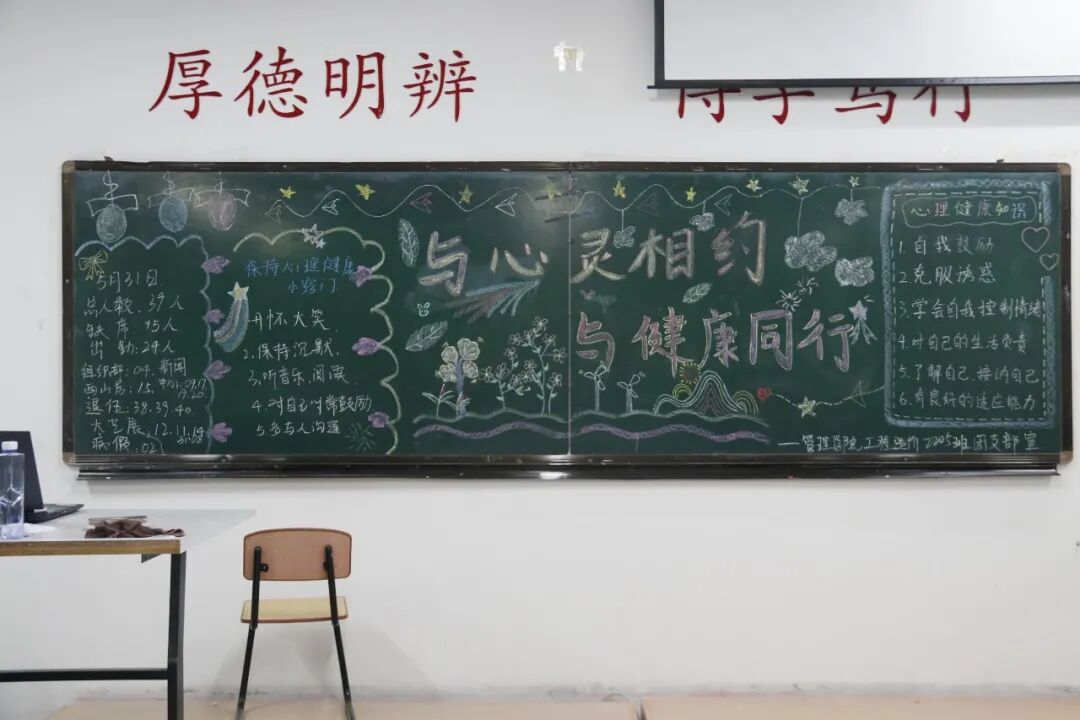 厚德明辨
学 行
5月31日
总人数:39人
缺席:15人
出勤:24人
组织部:04.新闻
西山居:15.
19.20.
退伍:38.39.40
病假:02
保持心理健康
小窍门
1.开怀大笑
2.保持沉默.
3.听音乐,阅读.
4.对自己时常鼓励
5.多与人沟通
与心灵相约
与健康同行
心理健康知识
1.自我鼓励
2.克服诱惑
3.学会自我控制情绪
4.对自己的生活负责
5.了解自己.接纳自己
6.有良好的适应能力
——管理学院工程造价2205班团支部宣